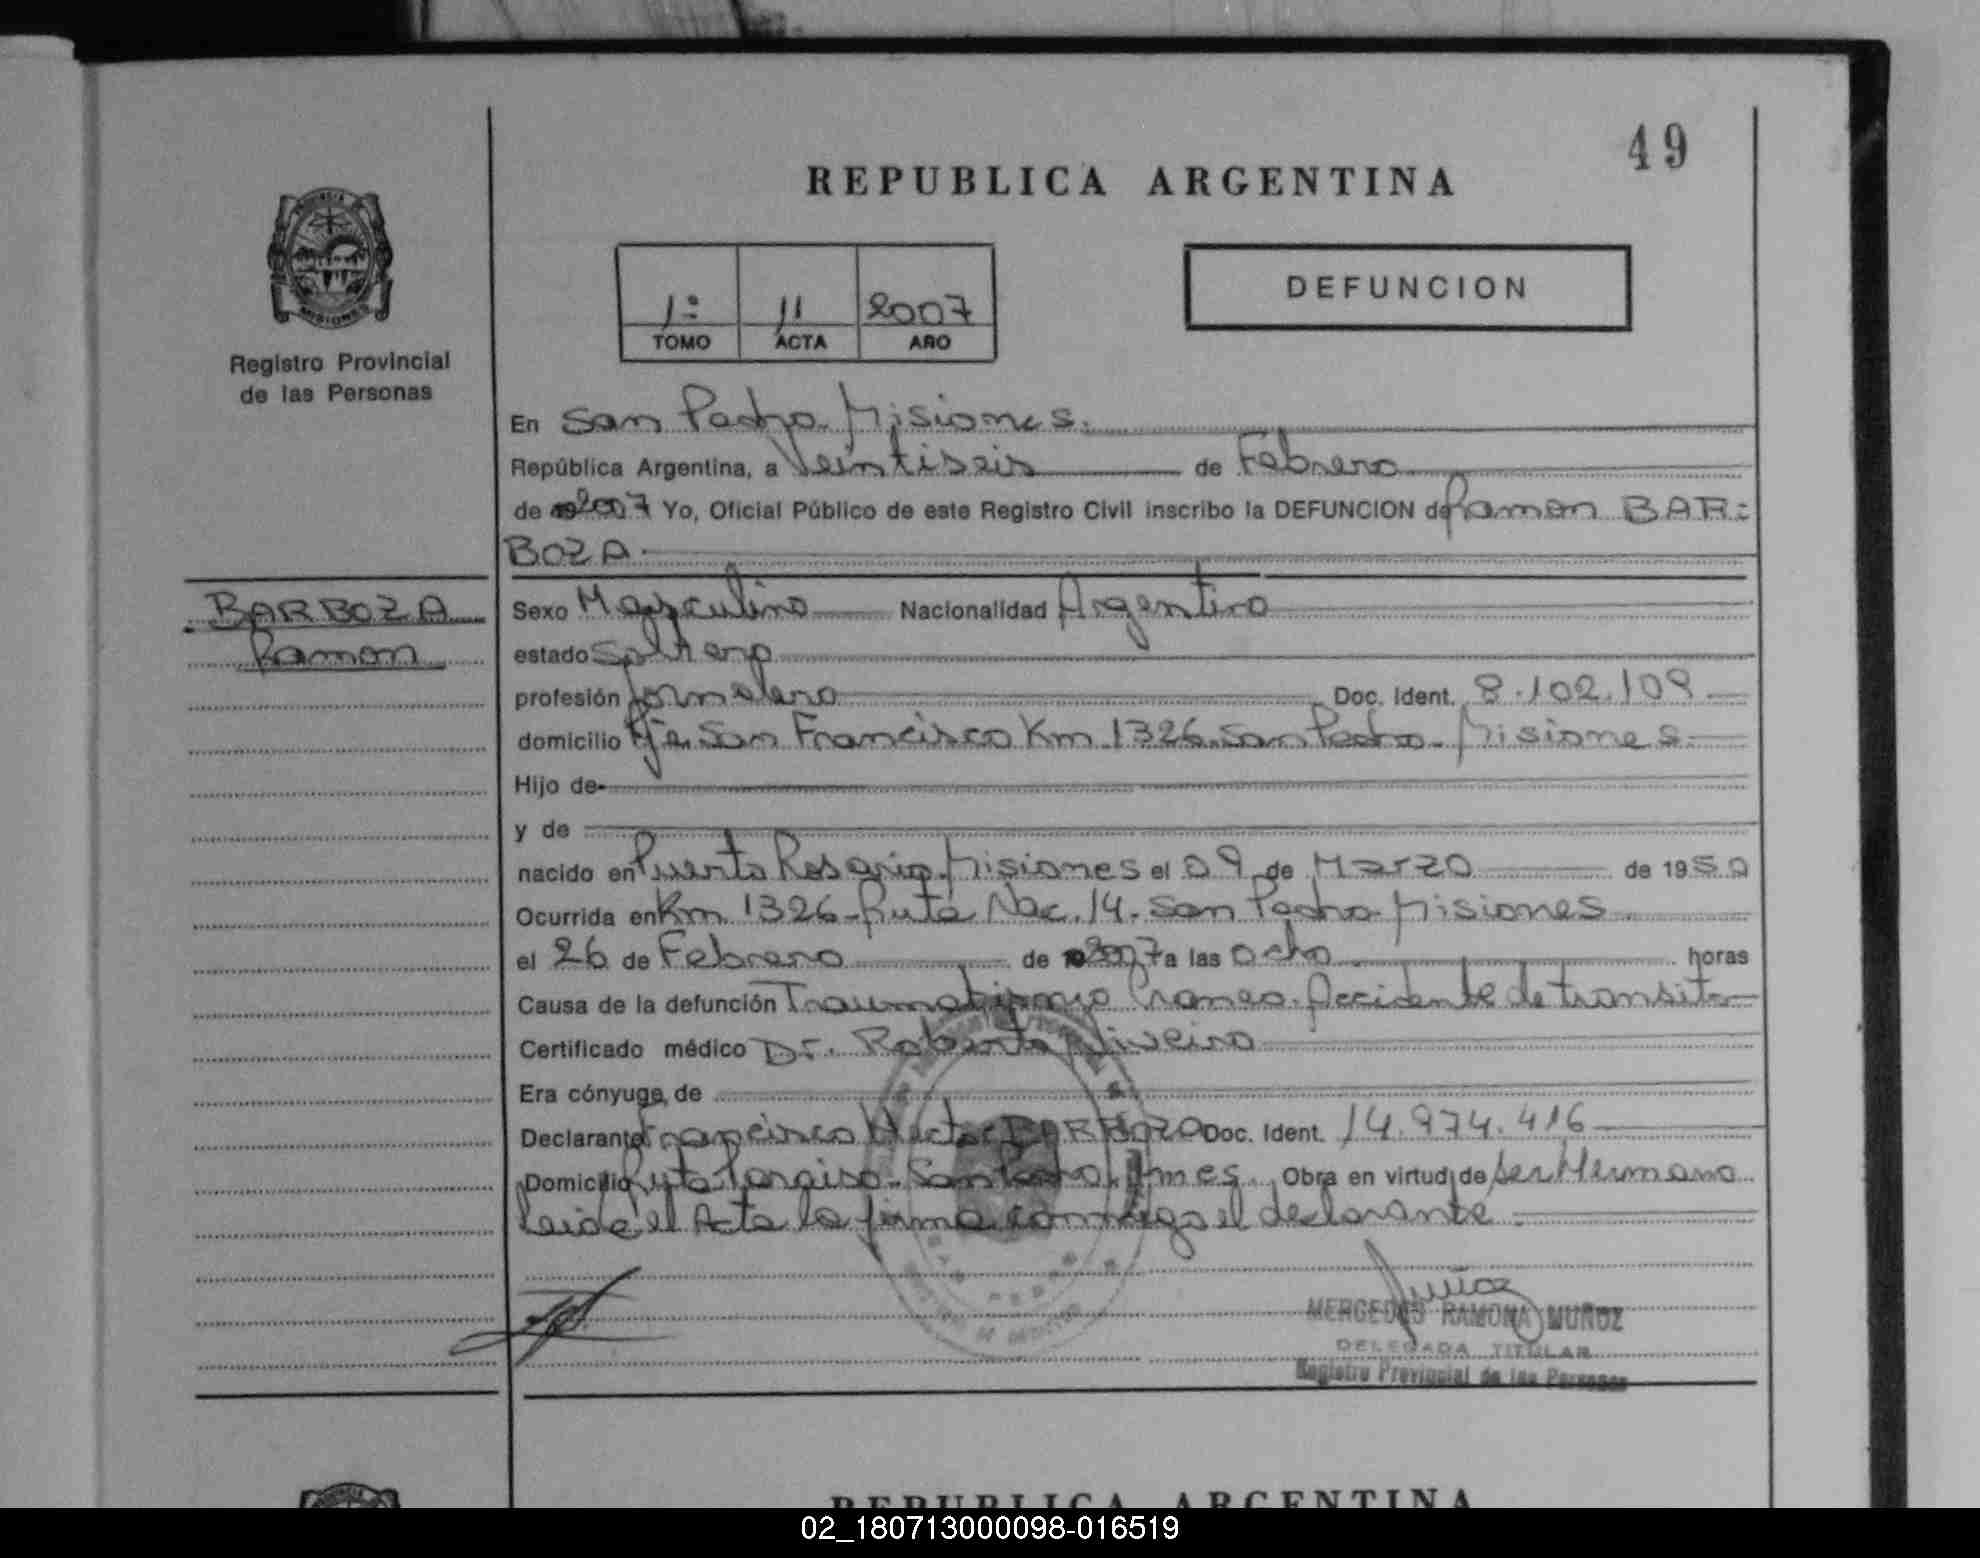 49
REPUBLICA ARGENTINA
1º 11 2007
TOMO ACTA AÑO
DEFUNCION
PROVINCIA
MISIONES
Registro Provincial
de las Personas
BARBOZA
Ramon
En San Pedro Misiones.
República Argentina, a Veintiseis de Febrero
de 2007 Yo, Oficial Público de este Registro Civil inscribo la DEFUNCION de Ramon BAR=
BOZA
Sexo Masculino Nacionalidad Argentino
estado Soltero
profesión Jornalero Doc. Ident. 8.102.109
domicilio Pje. San Francisco Km 1326. San Pedro - Misiones.
Hijo de
y de
nacido en Puerto Rosario. Misiones el 09 de Marzo de 1950
Ocurrida en Km 1326 - Ruta Nac. 14. San Pedro Misiones
el 26 de Febrero de 2007 a las Ocho horas
Causa de la defunción Traumatismo Craneo. Accidente de transito
Certificado médico Dr. Roberto Oliveira
Era cónyuge de
Declarante Francisco Hector BARBOZA Doc. Ident. 14.974.416
Domicilio Ruta Paraiso. San Pedro. Mnes. Obra en virtud de Ser Hermano
Leida el Acta la firma conmigo el declarante
Muñoz
MERCEDES RAMONA MUÑOZ
DELEGADA TITULAR
Registro Provincial de las Personas
REPUBLICA ARGENTINA
02_180713000098-016519